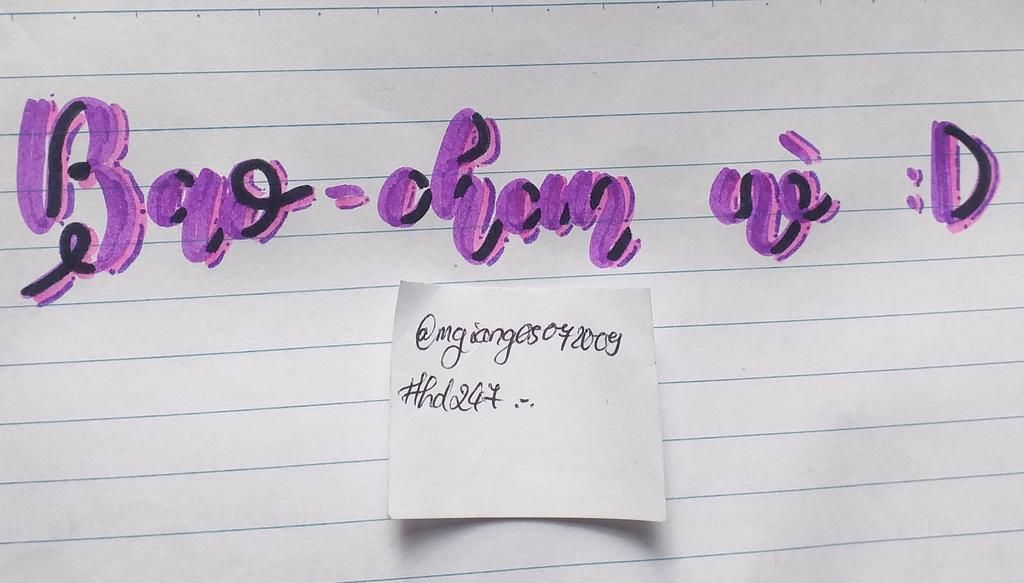 Bao-chan nè :D
@mgianges072009
#hd247 :-